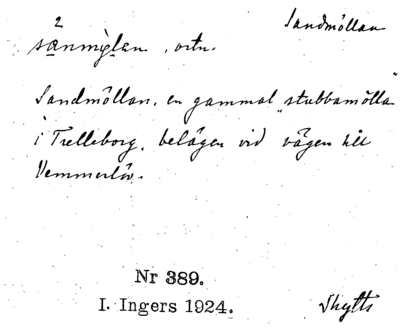 Sandmöllan
2
sanmiġlan, ortn.
Sandmöllan, en gammal "stubbamölla"
i Trelleborg, belägen vid vägen till
Vemmerlöv.
Nr 389.
I. Ingers 1924.
Skytts